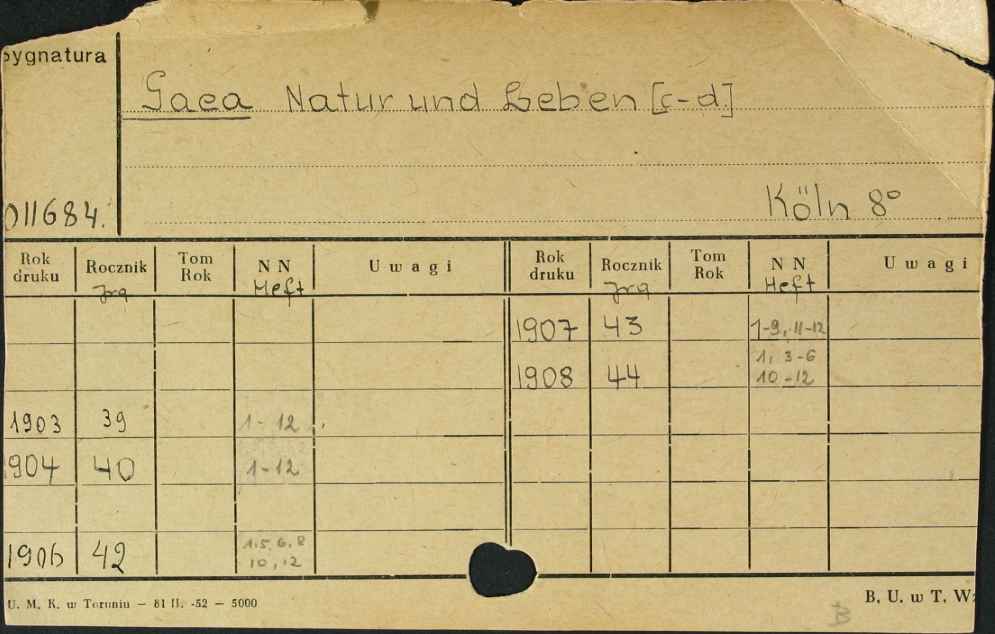 Sygnatura
Gaea Natur und Leben [c-d.]
011684.
Köln 8°
Rok druku Rocznik Tom Rok N N U w a g i Rok druku Rocznik Tom Rok N N U w a g i
Jrg Heft Jrg Heft
1907 43 1-9, 11-12
1908 44 1, 3-6 10-12
1903 39 1-12
1904 40 1-12
1906 42 1.5, 6, 8 10, 12
U. M. K. w Toruniu — 81 II. -52 — 5000
B. U. w T. Wz
B